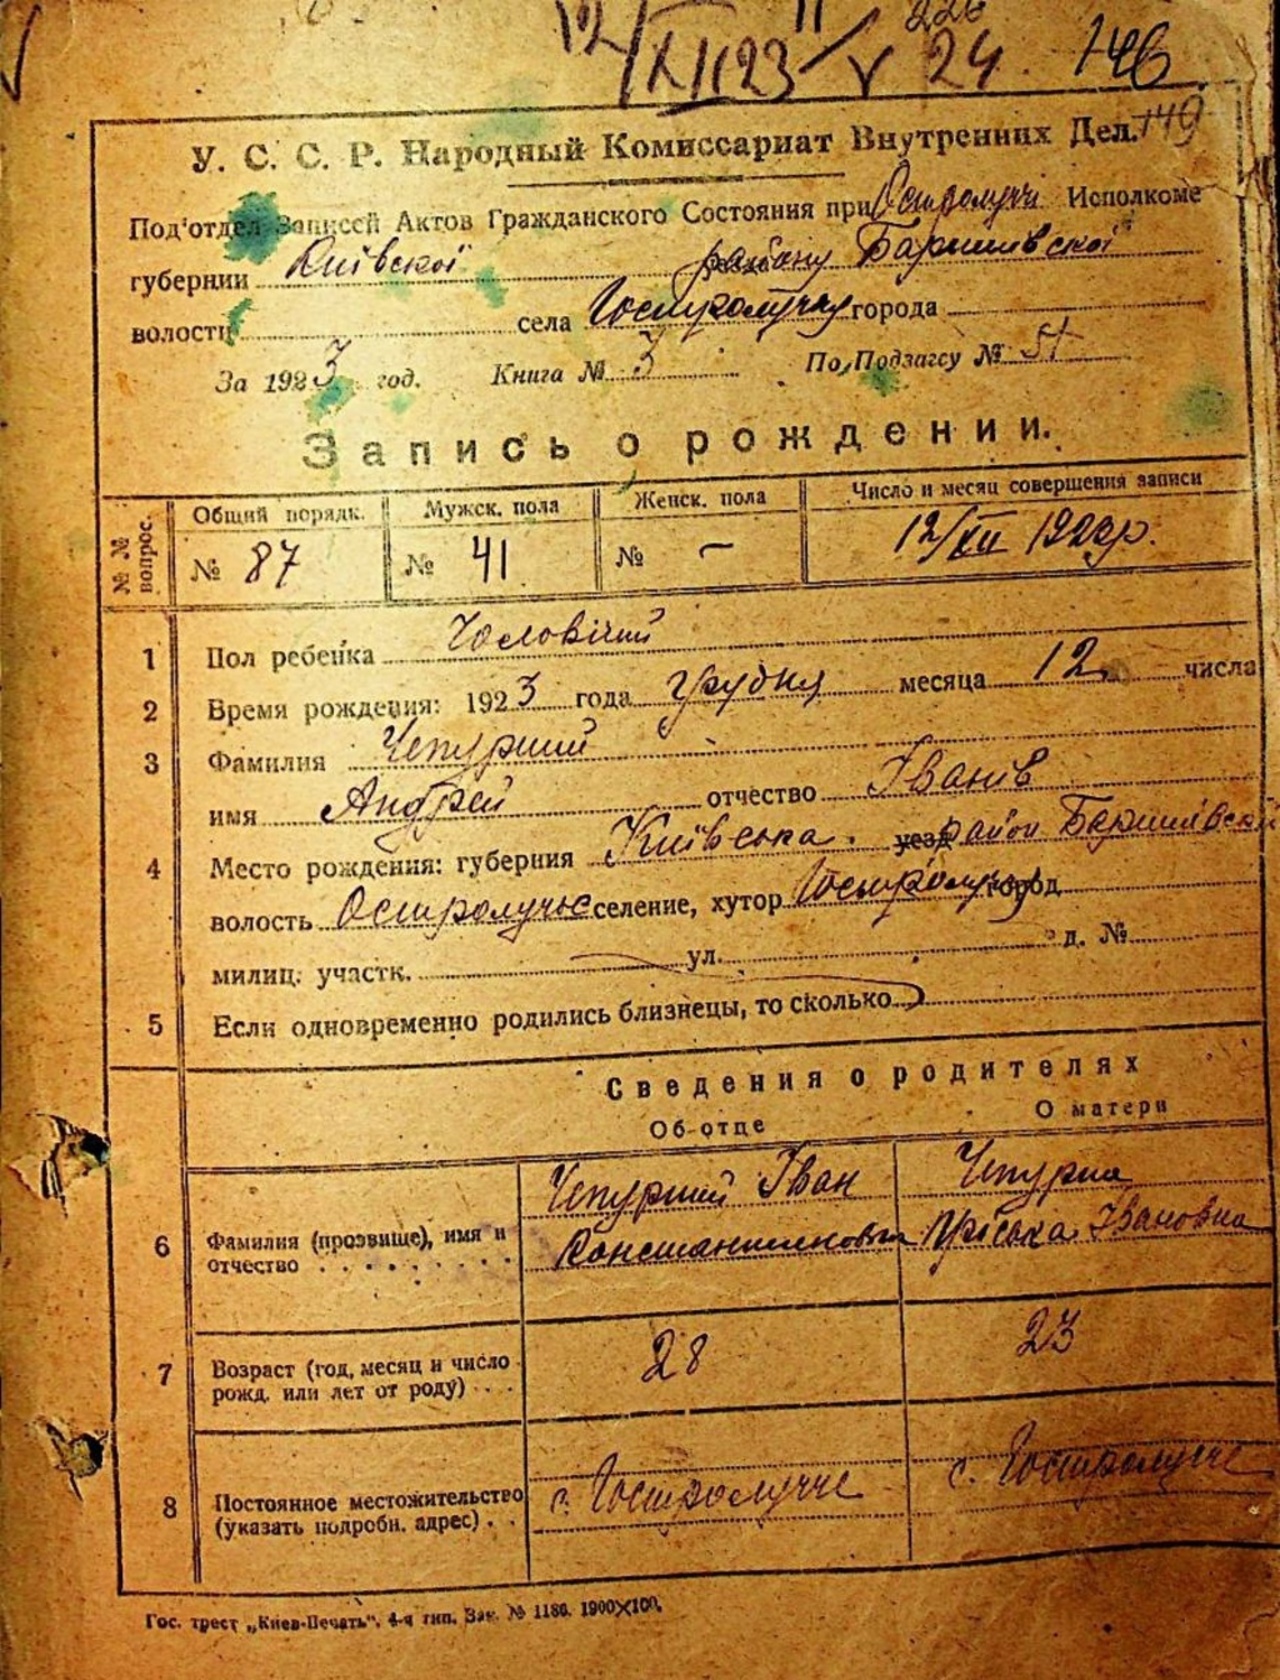 12/XII 23 24 226 146
149
У. С. С. Р. Народный Комиссариат Внутренних Дел.
Под'отдел Записей Актов Гражданского Состояния при Остролучі Исполкоме
губернии Київскої району Баришівскої
волости села Гостролуччу города
За 1923 год. Книга № 3 По Подзагсу №
Запись о рождении.
№ № вопрос.
Общий порядк. Мужск. пола Женск. пола Число и месяц совершения записи
№ 87 № 41 № — 12/XII 1923р.
1 Пол ребенка Чоловічий
2 Время рождения: 1923 года грудня месяца 12 числа
3 Фамилия Чепурний
имя Андрей отчество Іванів
4 Место рождения: губерния Київська уезд район Баришівский
волость Остролучье селение, хутор Гостролуччу город
милиц. участк. ул. д. №
5 Если одновременно родились близнецы, то сколько
Сведения о родителях
Об отце О матери
Чепурний Іван Чепурна
6 Фамилия (прозвище), имя и отчество Константинович Пріська Івановна
7 Возраст (год, месяц и число рожд. или лет от роду) 28 23
8 Постоянное местожительство (указать подробн. адрес) с. Гостролучче с. Гостролучче
Гос. трест „Киев-Печать", 4-я тип. Зак. № 1186. 1900X100.